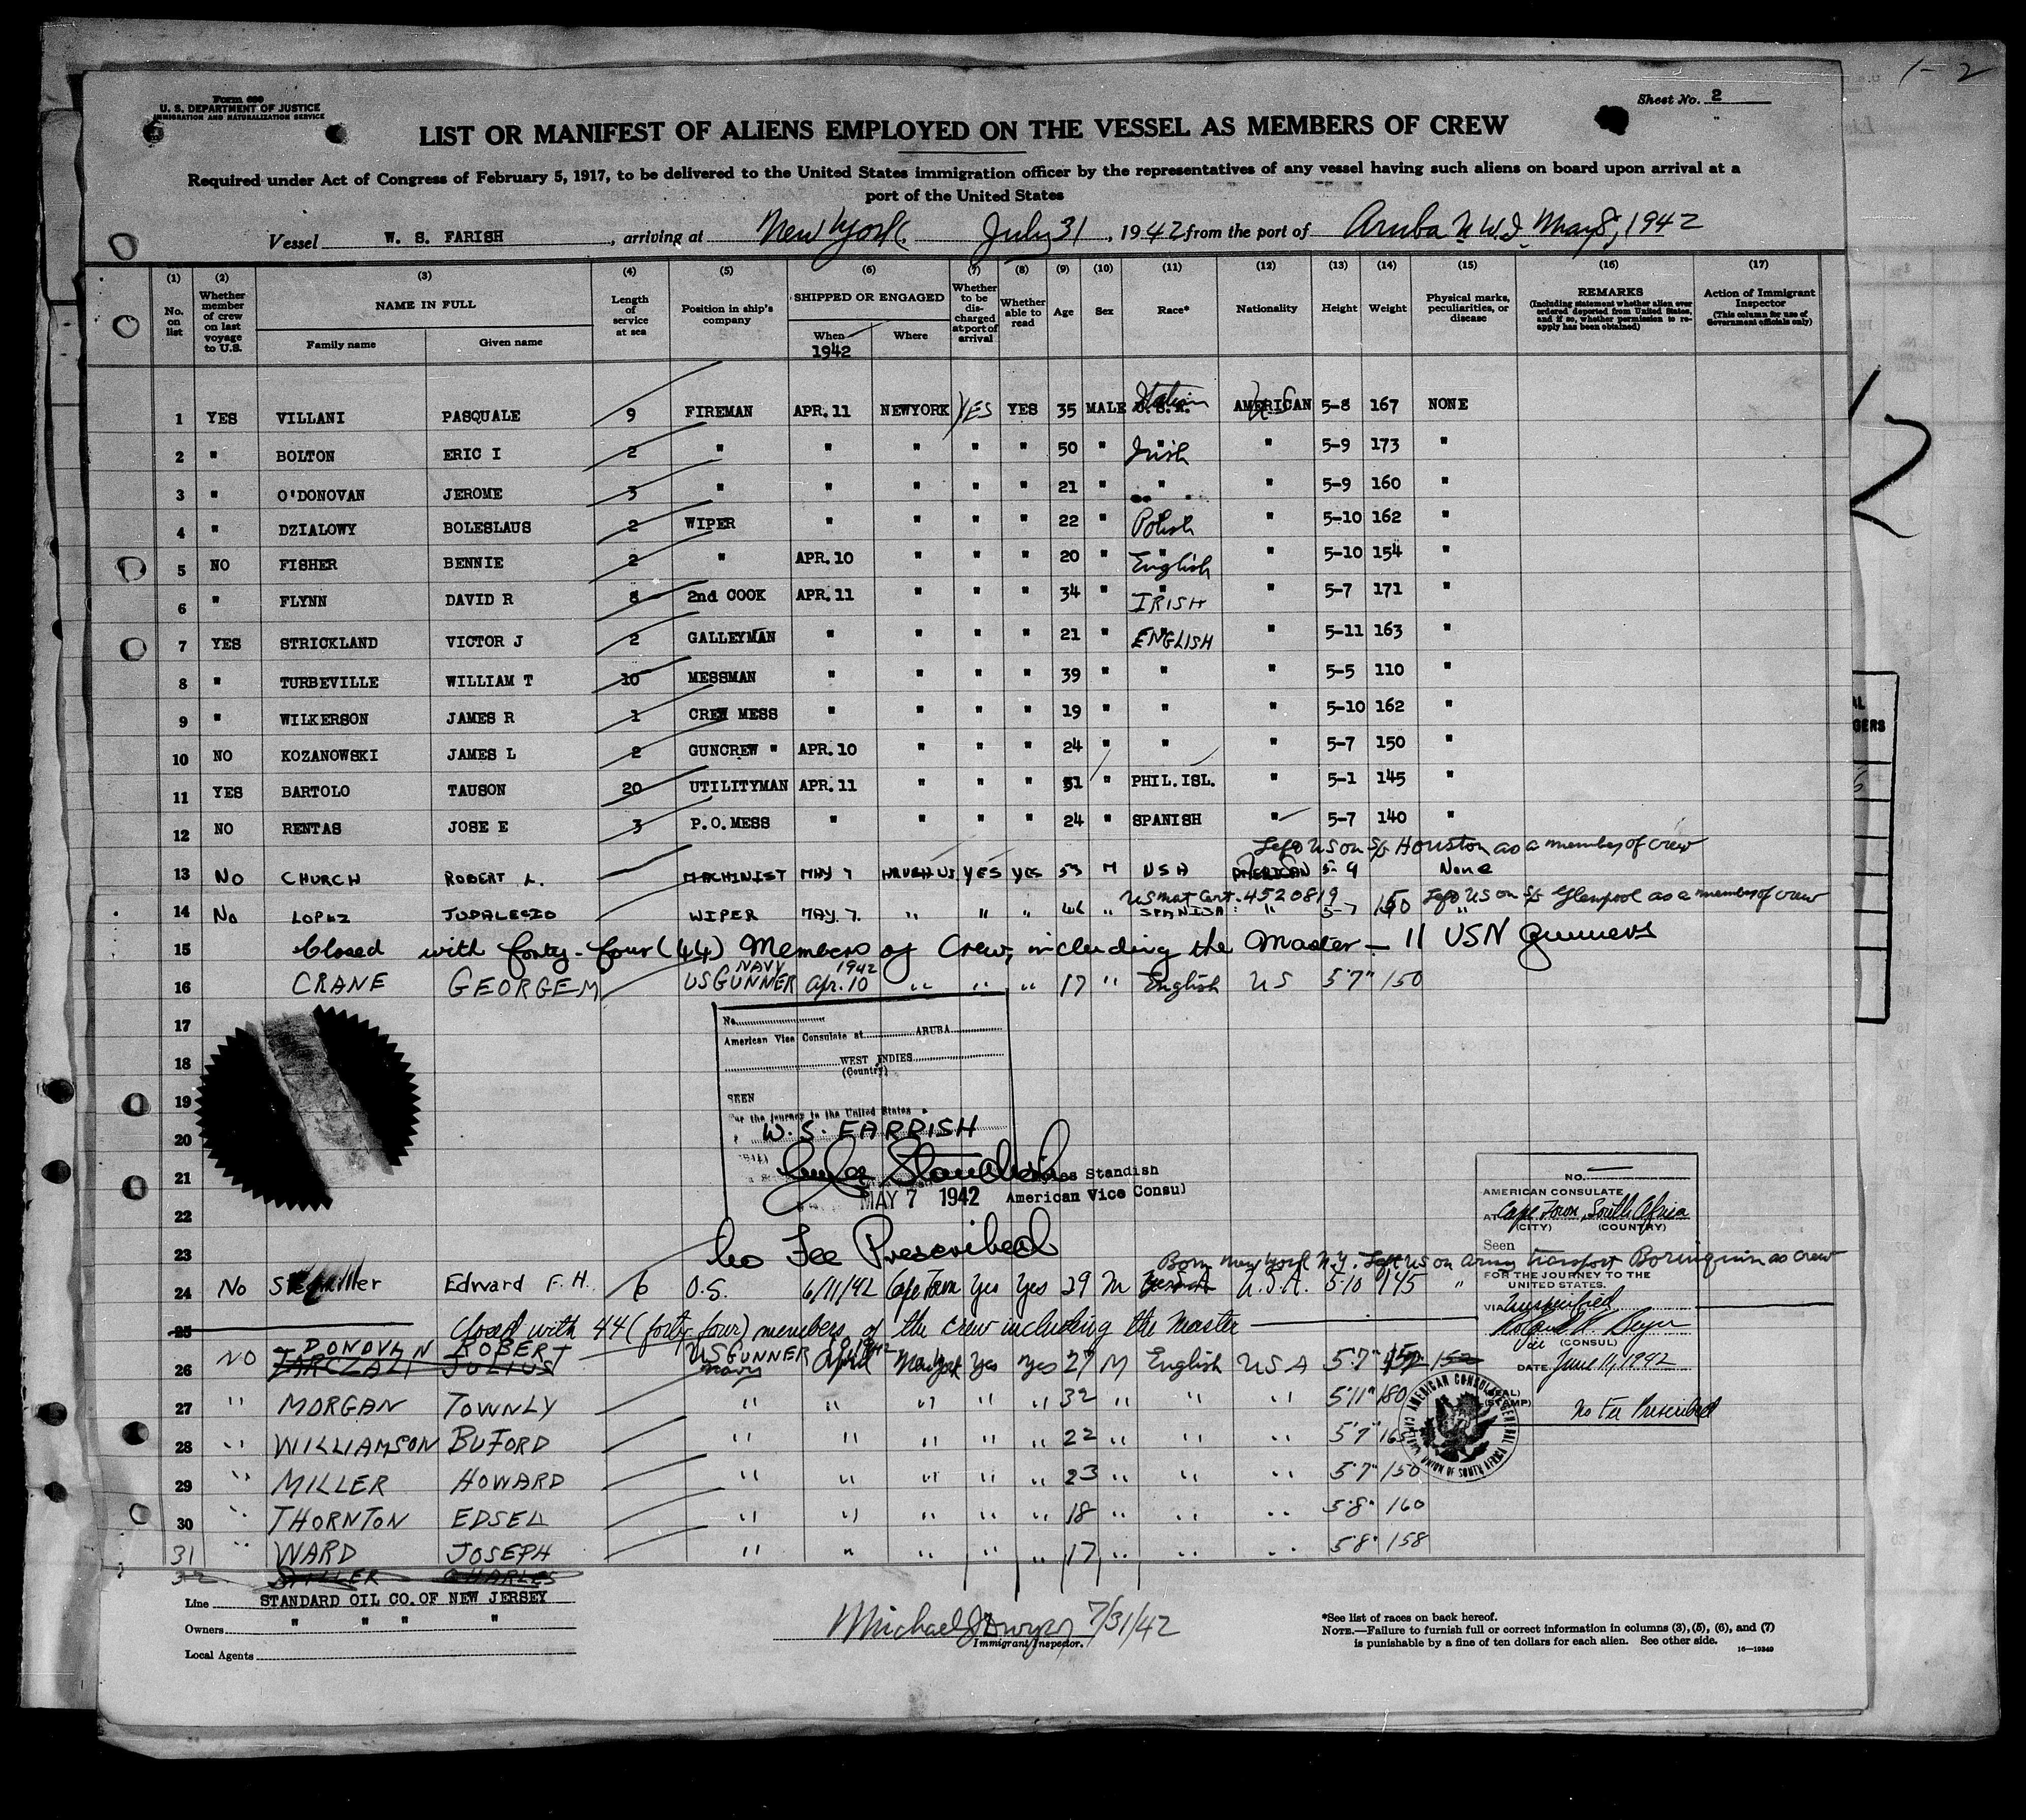 1-2
Form 680
U. S. DEPARTMENT OF JUSTICE
IMMIGRATION AND NATURALIZATION SERVICE
Sheet No. 2
LIST OR MANIFEST OF ALIENS EMPLOYED ON THE VESSEL AS MEMBERS OF CREW
Required under Act of Congress of February 5, 1917, to be delivered to the United States immigration officer by the representatives of any vessel having such aliens on board upon arrival at a
port of the United States
Vessel W. S. FARISH, arriving at New York. July 31, 1942 from the port of Aruba N.W.I. May 8, 1942
(1) (2) (3) (4) (5) (6) (7) (8) (9) (10) (11) (12) (13) (14) (15) (16) (17)
No. on list Whether member of crew on last voyage to U.S. NAME IN FULL Family name Given name Length of service at sea Position in ship's company SHIPPED OR ENGAGED When 1942 Where Whether to be discharged at port of arrival Whether able to read Age Sex Race* Nationality Height Weight Physical marks, peculiarities, or disease REMARKS (Including statement whether alien ever ordered deported from United States, and if so, whether permission to reapply has been obtained) Action of Immigrant Inspector (This column for use of Government officials only)
1 YES VILLANI PASQUALE 9 FIREMAN APR. 11 NEWYORK YES YES 35 MALE U.S.A. Italian AMERICAN US 5-8 167 NONE
2 " BOLTON ERIC I 2 " " " " " 50 " Irish " 5-9 173 "
3 " O'DONOVAN JEROME 3 " " " " " 21 " " " 5-9 160 "
4 " DZIALOWY BOLESLAUS 2 WIPER " " " " 22 " Polish " 5-10 162 "
5 NO FISHER BENNIE 2 " APR. 10 " " " 20 " English " 5-10 154 "
6 " FLYNN DAVID R 8 2nd COOK APR. 11 " " " 34 " IRISH " 5-7 171 "
7 YES STRICKLAND VICTOR J 2 GALLEYMAN " " " " 21 " ENGLISH " 5-11 163 "
8 " TURBEVILLE WILLIAM T 10 MESSMAN " " " " 39 " " " 5-5 110 "
9 " WILKERSON JAMES R 1 CREW MESS " " " " 19 " " " 5-10 162 "
10 NO KOZANOWSKI JAMES L 2 GUNCREW " APR. 10 " " " 24 " " " 5-7 150 "
11 YES BARTOLO TAUSON 20 UTILITYMAN APR. 11 " " " 51 " PHIL. ISL. " 5-1 145 "
12 NO RENTAS JOSE E 3 P.O. MESS " " " " 24 " SPANISH " 5-7 140 "
Left US on S/S Houston as a member of crew
13 NO CHURCH ROBERT L. MACHINIST MAY 7 YES YES 53 M USA AMERICAN 5-9 None
US Mat Cert. 4520819 Left US on S/S Glenpool as a member of crew
14 No LOPEZ WIPER MAY. 7. " " " 46 " SPANISH " 5-7 150 "
15 Closed with forty-four (44) Members of Crew, including the Master — 11 USN Gunners
16 CRANE GEORGE M US NAVY GUNNER 1942 Apr. 10 " " " 17 " English US 5'7" 150
17
18
19
20
21
22
23
No.
American Vice Consulate at ARUBA
WEST INDIES
(Country)
SEEN
For the journey to the United States
W.S. FARRISH
Standish
American Vice Consul
MAY 7 1942
No Fee Prescribed
NO.
AMERICAN CONSULATE
AT Cape Town, South Africa
(CITY) (COUNTRY)
Seen
FOR THE JOURNEY TO THE
UNITED STATES.
VIA Unspecified
Vice (CONSUL)
DATE June 11, 1942
(SEAL)
(STAMP)
No Fee Prescribed
Born New York N.Y. Left US on Army Transport Borinquin as crew
24 No Edward F. H. 6 O.S. 6/11/42 Cape Town Yes Yes 29 M U.S.A. 5-10 145 "
25 Closed with 44 (forty four) members of the crew including the Master
26 NO DONOVAN ROBERT JULIUS US GUNNER Navy April New York Yes Yes 27 M English USA 5'7" 152
27 " MORGAN TOWNLY " " " " " 32 " " " 5'11" 180
28 " WILLIAMSON BUFORD " " " " " 22 " " " 5'7" 165
29 " MILLER HOWARD " " " " " 23 " " " 5'7" 150
30 " THORNTON EDSEL " " " " " 18 " " " 5'8" 160
31 " WARD JOSEPH " " " " " 17 " " " 5'8" 158
32 MILLER CHARLES
Line STANDARD OIL CO. OF NEW JERSEY
Owners " " " "
Local Agents
Michael J Dwyer 7/31/42
Immigrant Inspector.
*See list of races on back hereof.
NOTE.—Failure to furnish full or correct information in columns (3), (5), (6), and (7)
is punishable by a fine of ten dollars for each alien. See other side.
16—19349